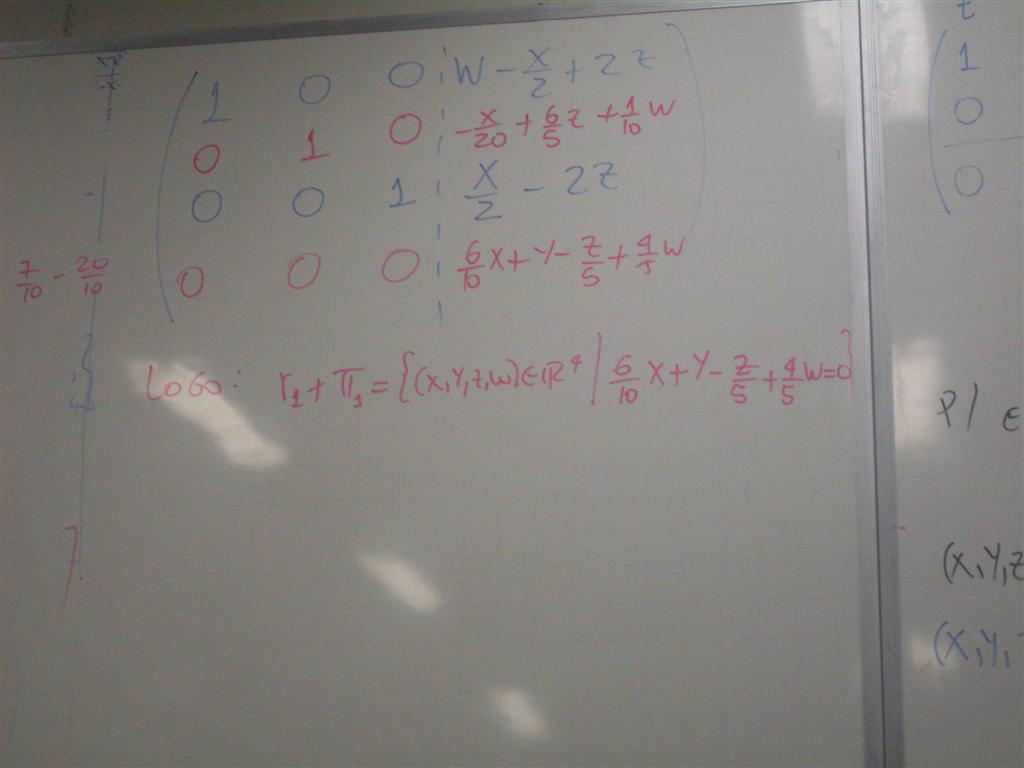 1 0 0 W - x/2 + 2z
0 1 0 -x/20 + 6/5 z + 1/10 w
0 0 1 x/2 - 2z
7/10 - 20/10
0 0 0 6/10 x + y - z/5 + 4/5 w
LOGO: r₁ + π₁ = {(x,y,z,w) ∈ ℝ⁴ | 6/10 x + y - z/5 + 4/5 w = 0}
t
1
0
0
P/ E
(x,y,z
(x,y,